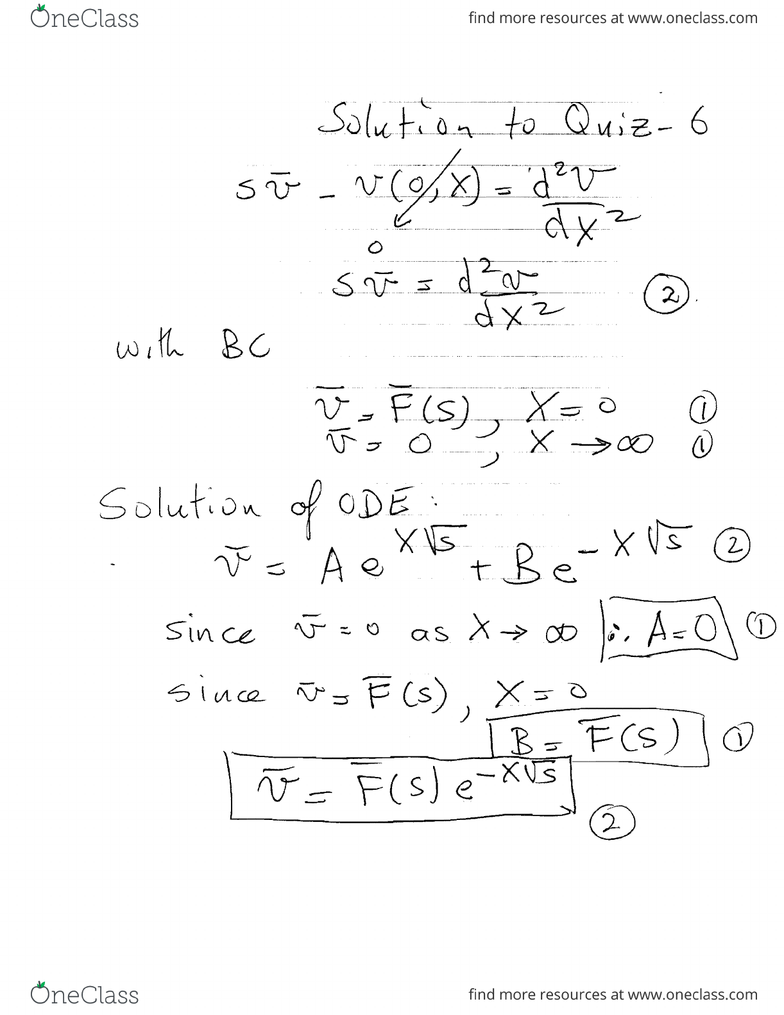 OneClass find more resources at www.oneclass.com
Solution to Quiz-6
s v̄ - v(0,x) = d²v/dx²
0
s v̄ = d²v/dx² ②.
with BC
v̄ = F̄(s), x=0 ①
v̄ = 0, x→∞ ①
Solution of ODE:
v̄ = A e^{x√s} + B e^{-x√s} ②
since v̄=0 as x→∞ ∴ A=0 ①
since v̄ = F̄(s), x=0
B = F̄(s) ①
v̄ = F̄(s) e^{-x√s}
②
OneClass find more resources at www.oneclass.com